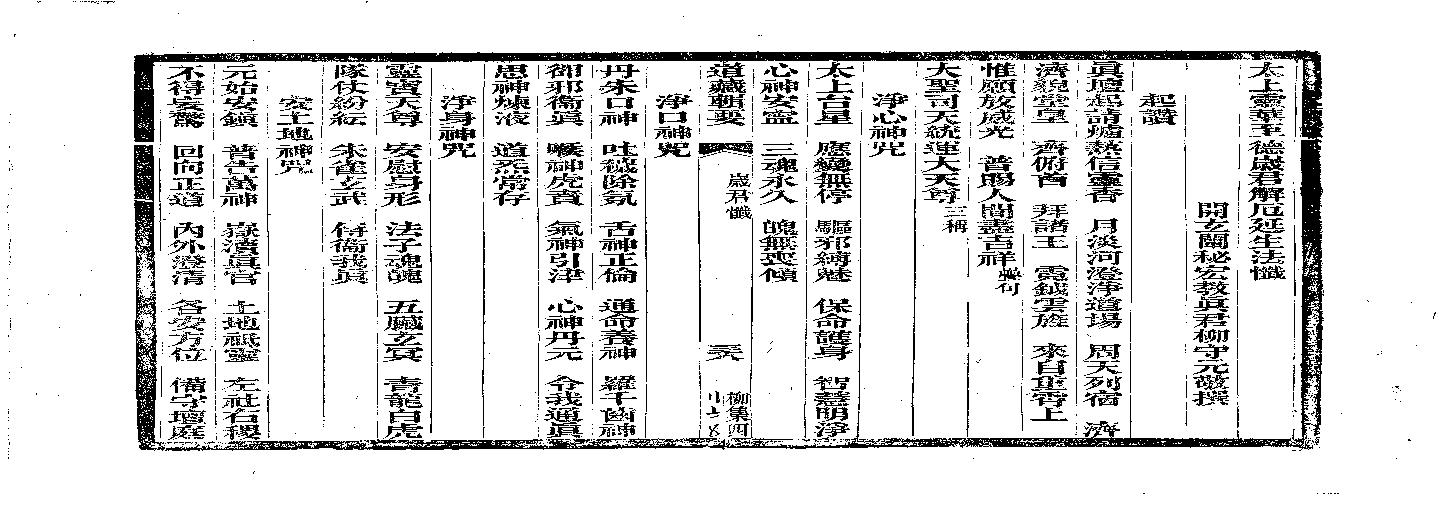 太上靈華至德歲君解厄延生法懺
開玄闡秘宏教眞君柳守元敬撰
起讚
眞壇起請爐熱信靈香 月淡河澄淨道場 周天列宿 濟
濟統堂皇 齊俯首 拜諸王 霓鉞雲旌 來自重霄上
惟願放威光 普賜人間盡吉祥
大聖司天統運大天尊三稱
淨心神咒
太上台星 應變無停 驅邪縛魅 保命護身 智慧明淨
心神安寧 三魂永久 魄無喪傾
道藏輯要 歲君懺 柳集四
淨口神咒
丹朱口神 吐穢除氛 舌神正倫 通命養神 羅千齒神
卻邪衞眞 喉神虎賁 氣神引津 心神丹元 令我通眞
思神煉液 道炁常存
淨身神咒
靈寶天尊 安慰身形 法子魂魄 五臟玄冥 青龍白虎
隊仗紛紜 朱雀玄武 侍衞我眞
安土地神咒
元始安鎭 普告萬神 嶽瀆眞官 土地祗靈 左社右稷
不得妄驚 回向正道 內外澄清 各安方位 備守壇庭